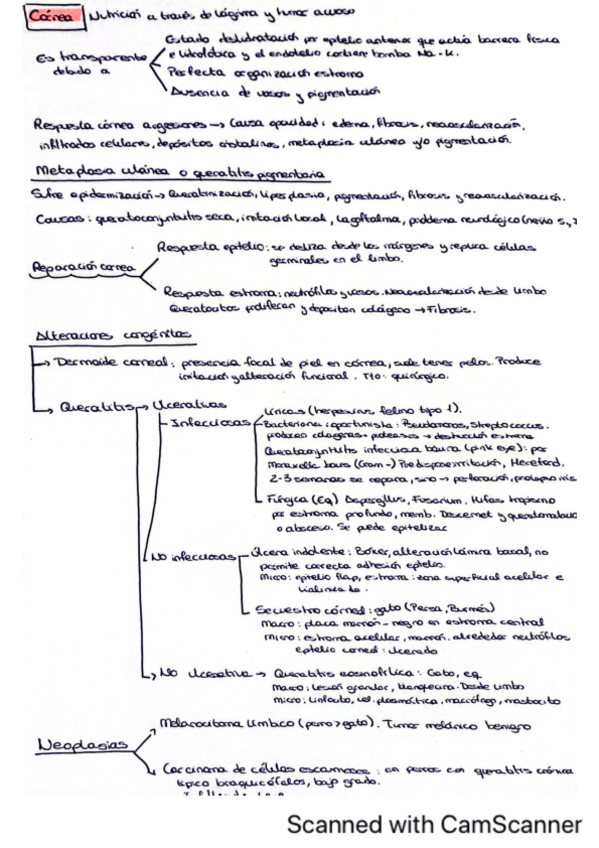 Córnea Nutrición a través de lágrima y humor acuoso
Es transparente debido a
Estado deshidratación por epitelio anterior que actúa barrera física
e hidrofóbica y el endotelio contiene bomba Na-K.
Perfecta organización estroma
Ausencia de vasos y pigmentación
Respuesta córnea agresiones → Causa opacidad: edema, fibrosis, neovascularización,
infiltrados celulares, depósitos cristalinos, metaplasia cutánea y/o pigmentación.
Metaplasia cutánea o queratitis pigmentaria
Sufre epidermización → Queratinización, hiperplasia, pigmentación, fibrosis y neovascularización.
Causas: queratoconjuntivitis seca, irritación local, lagoftalmia, problema neurológico (nervio 5,
Reparación córnea
Respuesta epitelio: se desliza desde los márgenes y replica células
germinales en el limbo.
Respuesta estroma: neutrófilos y vasos. Neovascularización desde limbo
Queratocitos proliferan y depositan colágeno → Fibrosis.
Alteraciones congénitas
→ Dermoide corneal: presencia focal de piel en córnea, suele tener pelos. Produce
irritación y alteración funcional. Tto: quirúrgico.
→ Queratitis → Ulcerativas
- Infecciosas
Víricas (herpesvirus felino tipo 1).
Bacteriana: oportunista: Pseudomonas, Streptococcus.
producen colagenasas + proteasas → destrucción estroma
Queratoconjuntivitis infecciosa bovina (pink eye): por
Moraxella bovis (Gram -) Predispone irritación, Hereford.
2-3 semanas se repara, sino → perforación, prolapso iris
Fúngica (Eq) Aspergillus, Fusarium. Hifas tropismo
por estroma profundo, memb. Descemet y
o absceso. Se puede epitelizar
No infecciosas
Úlcera indolente: Bóxer, alteración lámina basal, no
permite correcta adhesión epitelio.
Micro: epitelio flap, estroma: zona superficial acelular e
hialinizada.
Secuestro córneal: gato (Persa, Burmés)
Macro: placa marrón-negro en estroma central
micro: estroma acelular, marrón, alrededor neutrófilos
epitelio corneal: ulcerado
→ No Ulcerativa → Queratitis eosinofílica: Gato, eq
Macro: lesión granular, blanquecina. Desde limbo
micro: linfocito, cel. plasmática, macrófago, mastocito
Neoplasias
Melanocitoma límbico (perro > gato). Tumor melánico benigno
Carcinoma de células escamosas: en perros con queratitis crónica
típico braquicéfalos, bajo grado.
Scanned with CamScanner